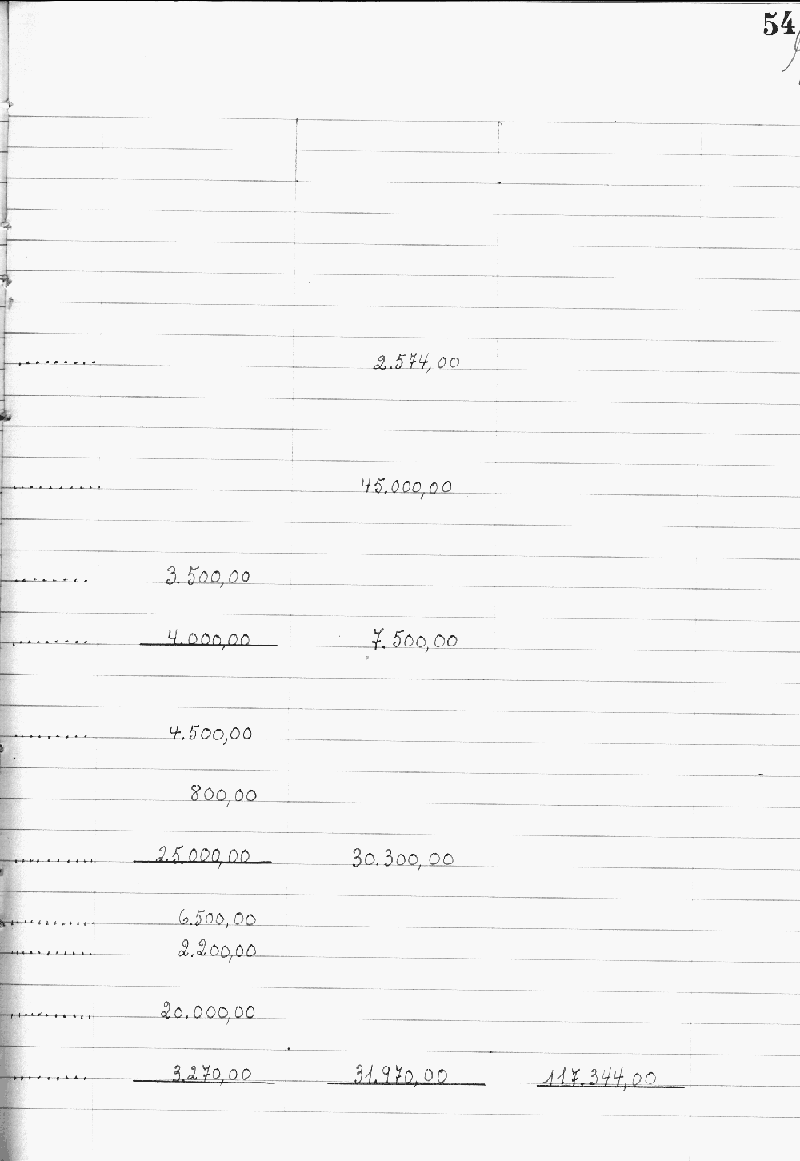 54
......... 2.574,00
.......... 45.000,00
......... 3.500,00
......... 4.000,00 7.500,00
......... 4.500,00
800,00
.......... 25.000,00 30.300,00
.......... 6.500,00
.......... 2.200,00
.......... 20.000,00
......... 3.270,00 31.970,00 117.344,00